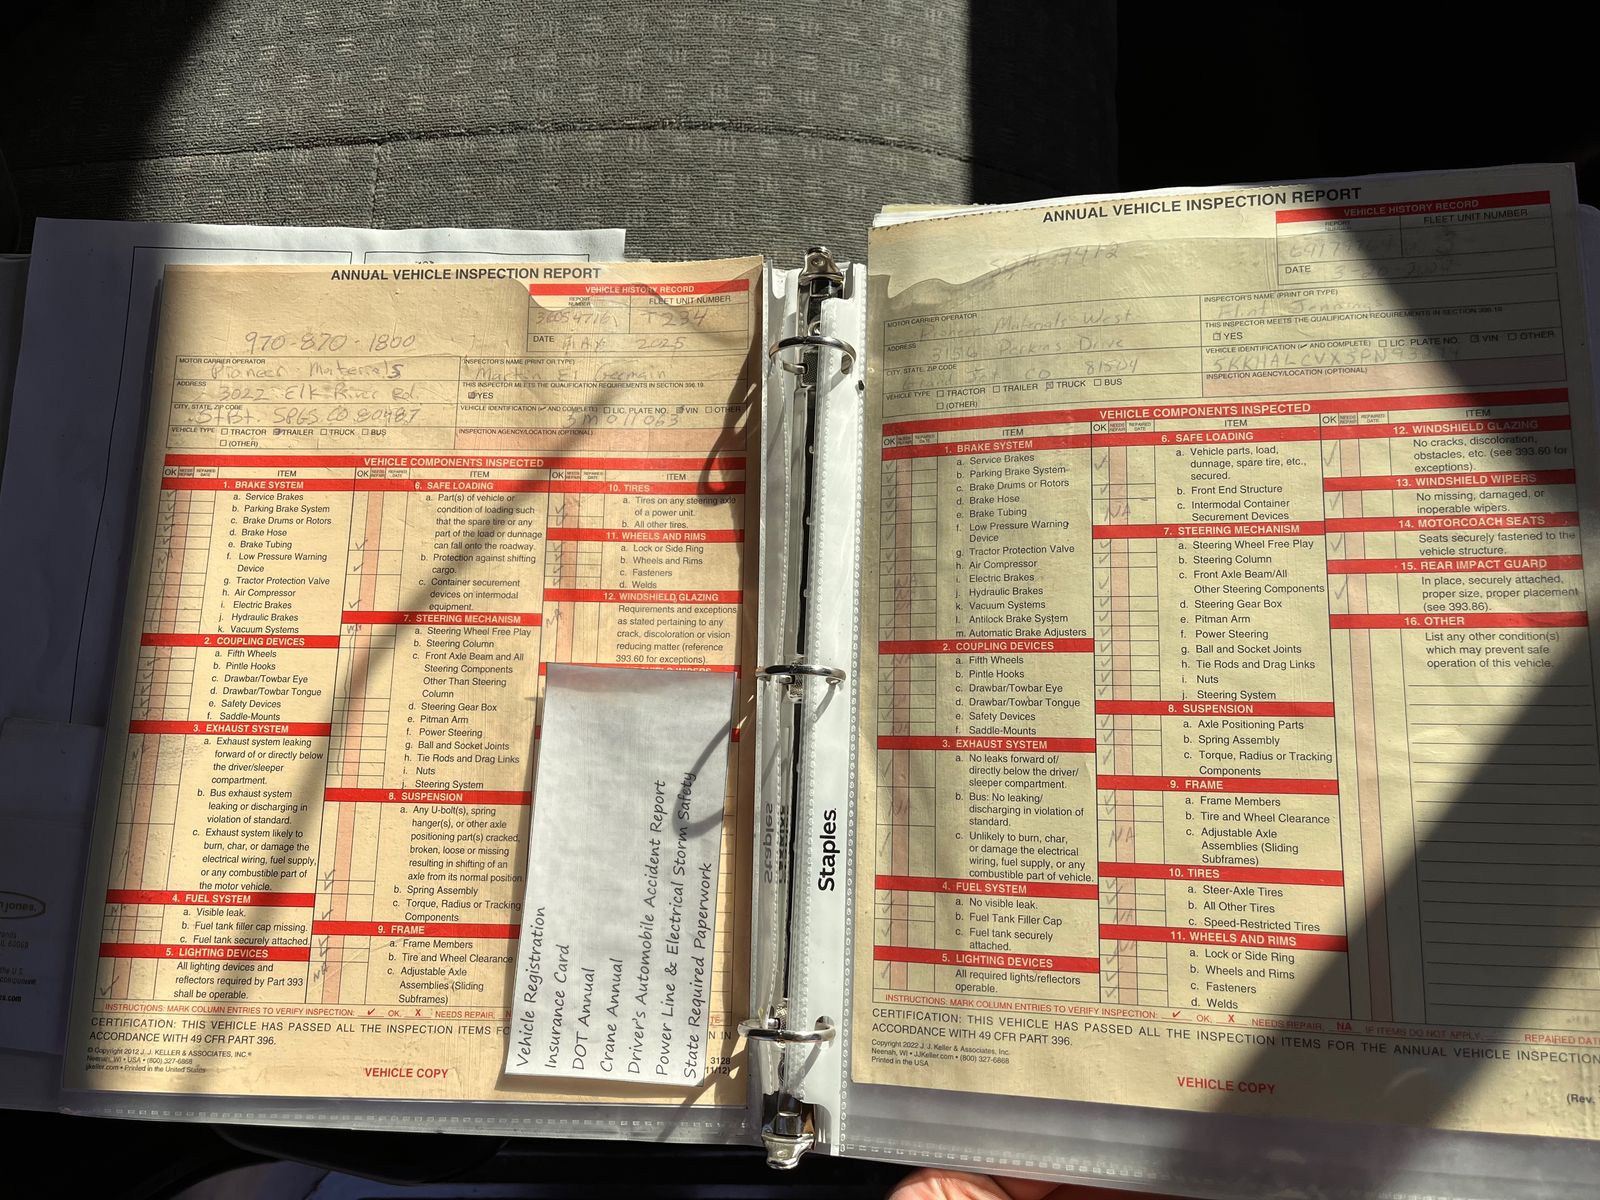 ANNUAL VEHICLE INSPECTION REPORT
VEHICLE HISTORY RECORD
REPORT NUMBER
FLEET UNIT NUMBER
T234
DATE
2025
970-870-1800
MOTOR CARRIER OPERATOR
Pioneer Materials
INSPECTOR'S NAME (PRINT OR TYPE)
Martin El Germain
ADDRESS
3022 Elk River Rd.
THIS INSPECTOR MEETS THE QUALIFICATION REQUIREMENTS IN SECTION 396.19.
YES
CITY, STATE, ZIP CODE
SPGS CO 80487
VEHICLE IDENTIFICATION (✓ AND COMPLETE) LIC. PLATE NO. VIN OTHER
VEHICLE TYPE TRACTOR TRAILER TRUCK BUS
(OTHER)
INSPECTION AGENCY/LOCATION (OPTIONAL)
VEHICLE COMPONENTS INSPECTED
OK NEEDS REPAIR REPAIRED DATE ITEM
1. BRAKE SYSTEM
a. Service Brakes
b. Parking Brake System
c. Brake Drums or Rotors
d. Brake Hose
e. Brake Tubing
f. Low Pressure Warning
Device
g. Tractor Protection Valve
h. Air Compressor
i. Electric Brakes
j. Hydraulic Brakes
k. Vacuum Systems
2. COUPLING DEVICES
a. Fifth Wheels
b. Pintle Hooks
c. Drawbar/Towbar Eye
d. Drawbar/Towbar Tongue
e. Safety Devices
f. Saddle-Mounts
3. EXHAUST SYSTEM
a. Exhaust system leaking
forward of or directly below
the driver/sleeper
compartment.
b. Bus exhaust system
leaking or discharging in
violation of standard.
c. Exhaust system likely to
burn, char, or damage the
electrical wiring, fuel supply,
or any combustible part of
the motor vehicle.
4. FUEL SYSTEM
a. Visible leak.
b. Fuel tank filler cap missing.
c. Fuel tank securely attached.
5. LIGHTING DEVICES
All lighting devices and
reflectors required by Part 393
shall be operable.
OK NEEDS REPAIR REPAIRED DATE ITEM
6. SAFE LOADING
a. Part(s) of vehicle or
condition of loading such
that the spare tire or any
part of the load or dunnage
can fall onto the roadway.
b. Protection against shifting
cargo.
c. Container securement
devices on intermodal
equipment.
7. STEERING MECHANISM
a. Steering Wheel Free Play
b. Steering Column
c. Front Axle Beam and All
Steering Components
Other Than Steering
Column
d. Steering Gear Box
e. Pitman Arm
f. Power Steering
g. Ball and Socket Joints
h. Tie Rods and Drag Links
i. Nuts
j. Steering System
8. SUSPENSION
a. Any U-bolt(s), spring
hanger(s), or other axle
positioning part(s) cracked,
broken, loose or missing
resulting in shifting of an
axle from its normal position.
b. Spring Assembly
c. Torque, Radius or Tracking
Components
9. FRAME
a. Frame Members
b. Tire and Wheel Clearance
c. Adjustable Axle
Assemblies (Sliding
Subframes)
ITEM
10. TIRES
a. Tires on any steering axle
of a power unit.
b. All other tires.
11. WHEELS AND RIMS
a. Lock or Side Ring
b. Wheels and Rims
c. Fasteners
d. Welds
12. WINDSHIELD GLAZING
Requirements and exceptions
as stated pertaining to any
crack, discoloration or vision
reducing matter (reference
393.60 for exceptions).
INSTRUCTIONS: MARK COLUMN ENTRIES TO VERIFY INSPECTION: ✓ OK, X NEEDS REPAIR,
CERTIFICATION: THIS VEHICLE HAS PASSED ALL THE INSPECTION ITEMS
ACCORDANCE WITH 49 CFR PART 396.
© Copyright 2012 J. J. KELLER & ASSOCIATES, INC.®
Neenah, WI • USA • (800) 327-6868
jjkeller.com • Printed in the United States
VEHICLE COPY
3128
Vehicle Registration
Insurance Card
DOT Annual
Crane Annual
Driver's Automobile Accident Report
Power Line & Electrical Storm Safety
State Required Paperwork
Staples
ANNUAL VEHICLE INSPECTION REPORT
VEHICLE HISTORY RECORD
REPORT NUMBER
FLEET UNIT NUMBER
3
DATE
MOTOR CARRIER OPERATOR
Pioneer Materials West
INSPECTOR'S NAME (PRINT OR TYPE)
ADDRESS
Perkins Drive
THIS INSPECTOR MEETS THE QUALIFICATION REQUIREMENTS IN SECTION 396.19.
YES
CITY, STATE, ZIP CODE
CO 81504
VEHICLE IDENTIFICATION (✓ AND COMPLETE) LIC. PLATE NO. VIN OTHER
VEHICLE TYPE TRACTOR TRAILER TRUCK BUS
(OTHER)
INSPECTION AGENCY/LOCATION (OPTIONAL)
VEHICLE COMPONENTS INSPECTED
OK NEEDS REPAIR REPAIRED DATE ITEM
1. BRAKE SYSTEM
a. Service Brakes
b. Parking Brake System
c. Brake Drums or Rotors
d. Brake Hose
e. Brake Tubing
f. Low Pressure Warning
Device
g. Tractor Protection Valve
h. Air Compressor
i. Electric Brakes
j. Hydraulic Brakes
k. Vacuum Systems
l. Antilock Brake System
m. Automatic Brake Adjusters
2. COUPLING DEVICES
a. Fifth Wheels
b. Pintle Hooks
c. Drawbar/Towbar Eye
d. Drawbar/Towbar Tongue
e. Safety Devices
f. Saddle-Mounts
3. EXHAUST SYSTEM
a. No leaks forward of/
directly below the driver/
sleeper compartment.
b. Bus: No leaking/
discharging in violation of
standard.
c. Unlikely to burn, char,
or damage the electrical
wiring, fuel supply, or any
combustible part of vehicle.
4. FUEL SYSTEM
a. No visible leak.
b. Fuel Tank Filler Cap
c. Fuel tank securely
attached.
5. LIGHTING DEVICES
All required lights/reflectors
operable.
OK NEEDS REPAIR REPAIRED DATE ITEM
6. SAFE LOADING
a. Vehicle parts, load,
dunnage, spare tire, etc.,
secured.
b. Front End Structure
c. Intermodal Container
Securement Devices
NA
7. STEERING MECHANISM
a. Steering Wheel Free Play
b. Steering Column
c. Front Axle Beam/All
Other Steering Components
d. Steering Gear Box
e. Pitman Arm
f. Power Steering
g. Ball and Socket Joints
h. Tie Rods and Drag Links
i. Nuts
j. Steering System
8. SUSPENSION
a. Axle Positioning Parts
b. Spring Assembly
c. Torque, Radius or Tracking
Components
9. FRAME
a. Frame Members
b. Tire and Wheel Clearance
c. Adjustable Axle
Assemblies (Sliding
Subframes)
NA
10. TIRES
a. Steer-Axle Tires
b. All Other Tires
c. Speed-Restricted Tires
NA
11. WHEELS AND RIMS
a. Lock or Side Ring
b. Wheels and Rims
c. Fasteners
d. Welds
OK NEEDS REPAIR REPAIRED DATE ITEM
12. WINDSHIELD GLAZING
No cracks, discoloration,
obstacles, etc. (see 393.60 for
exceptions).
13. WINDSHIELD WIPERS
No missing, damaged, or
inoperable wipers.
14. MOTORCOACH SEATS
Seats securely fastened to the
vehicle structure.
15. REAR IMPACT GUARD
In place, securely attached,
proper size, proper placement
(see 393.86).
16. OTHER
List any other condition(s)
which may prevent safe
operation of this vehicle.
INSTRUCTIONS: MARK COLUMN ENTRIES TO VERIFY INSPECTION: ✓ OK, X NEEDS REPAIR, NA IF ITEMS DO NOT APPLY, REPAIRED
CERTIFICATION: THIS VEHICLE HAS PASSED ALL THE INSPECTION ITEMS FOR THE ANNUAL VEHICLE INSPECTION
ACCORDANCE WITH 49 CFR PART 396.
© Copyright 2022 J. J. Keller & Associates, Inc.
Neenah, WI • JJKeller.com • (800) 327-6868
Printed in the USA
VEHICLE COPY
(Rev.